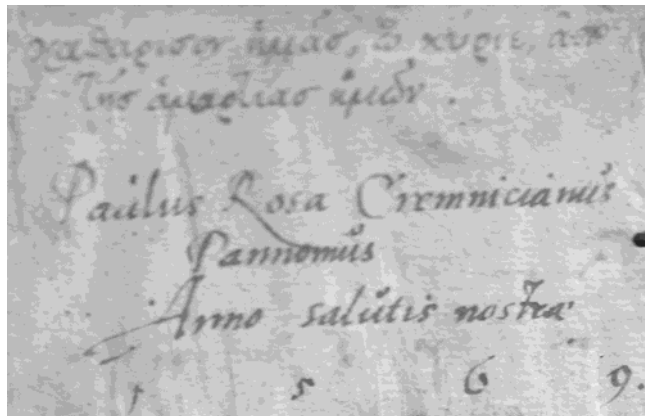 καθάρισον ἡμᾶς, ὦ κύριε, ἀπὸ
τῆς ἁμαρτίας ἡμῶν.
Paulus Rosa Cremnicianus
Pannonius
Anno salutis nostræ
1 5 6 9.